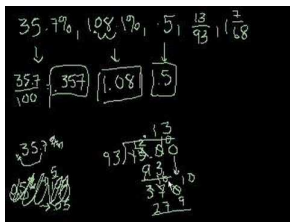 35.7%, 108.1%, .5, 13/93, 1 7/68
35.7/100 = .357 1.08 1.5
35.7%
.13
93 13.00
93
370
279